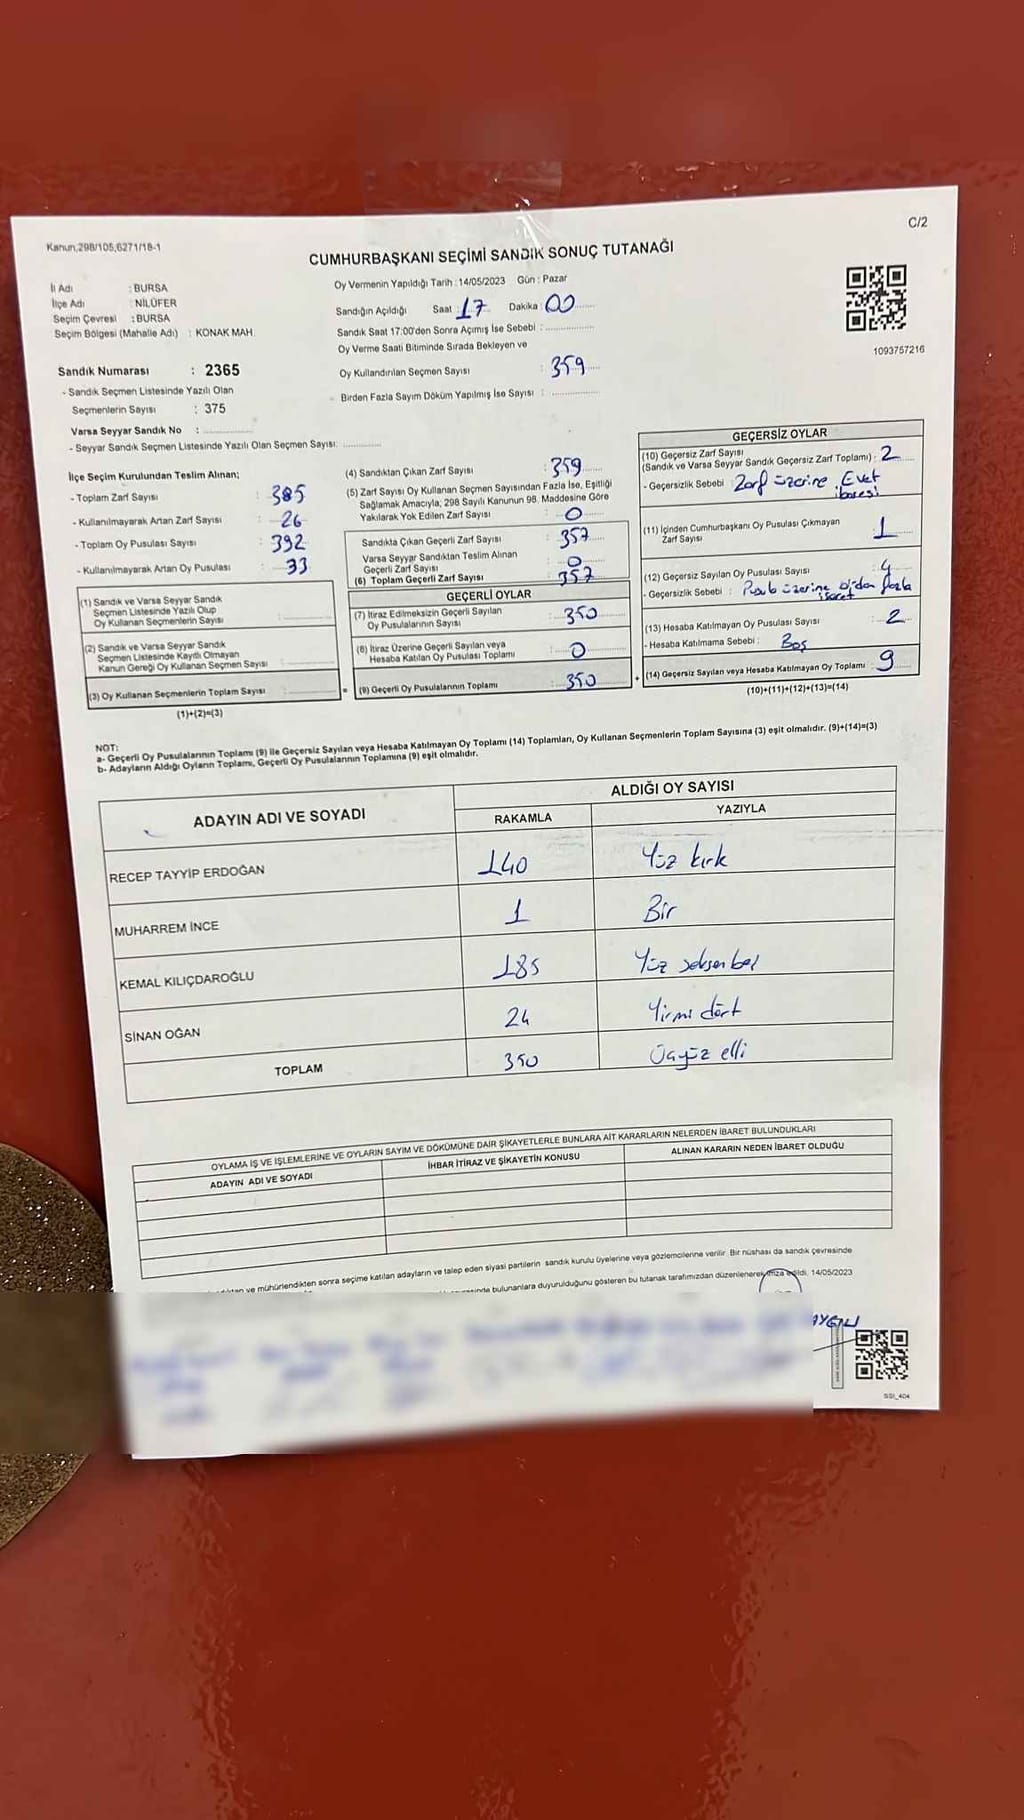 Kanun,298/105,6271/18-1
C/2
CUMHURBAŞKANI SEÇİMİ SANDIK SONUÇ TUTANAĞI
İl Adı : BURSA
İlçe Adı : NİLÜFER
Seçim Çevresi : BURSA
Seçim Bölgesi (Mahalle Adı) : KONAK MAH.
Oy Vermenin Yapıldığı Tarih : 14/05/2023 Gün : Pazar
Sandığın Açıldığı Saat : 17 Dakika : 00
Sandık Saat 17:00'den Sonra Açımış İse Sebebi :
Oy Verme Saati Bitiminde Sırada Bekleyen ve
Oy Kullandırılan Seçmen Sayısı : 359
Birden Fazla Sayım Döküm Yapılmış İse Sayısı :
1093757216
Sandık Numarası : 2365
- Sandık Seçmen Listesinde Yazılı Olan
Seçmenlerin Sayısı : 375
Varsa Seyyar Sandık No :
- Seyyar Sandık Seçmen Listesinde Yazılı Olan Seçmen Sayısı:
İlçe Seçim Kurulundan Teslim Alınan;
- Toplam Zarf Sayısı : 385
- Kullanılmayarak Artan Zarf Sayısı : 26
- Toplam Oy Pusulası Sayısı : 392
- Kullanılmayarak Artan Oy Pusulası : 33
(1) Sandık ve Varsa Seyyar Sandık
Seçmen Listesinde Yazılı Olup
Oy Kullanan Seçmenlerin Sayısı :
(2) Sandık ve Varsa Seyyar Sandık
Seçmen Listesinde Kayıtlı Olmayan
Kanun Gereği Oy Kullanan Seçmen Sayısı :
(3) Oy Kullanan Seçmenlerin Toplam Sayısı :
(1)+(2)=(3)
(4) Sandıktan Çıkan Zarf Sayısı : 359
(5) Zarf Sayısı Oy Kullanan Seçmen Sayısından Fazla İse, Eşitliği
Sağlamak Amacıyla; 298 Sayılı Kanunun 98. Maddesine Göre
Yakılarak Yok Edilen Zarf Sayısı : 0
Sandıkta Çıkan Geçerli Zarf Sayısı : 357
Varsa Seyyar Sandıktan Teslim Alınan
Geçerli Zarf Sayısı : 0
(6) Toplam Geçerli Zarf Sayısı : 357
GEÇERLİ OYLAR
(7) İtiraz Edilmeksizin Geçerli Sayılan
Oy Pusulalarının Sayısı : 350
(8) İtiraz Üzerine Geçerli Sayılan veya
Hesaba Katılan Oy Pusulası Toplamı : 0
= (9) Geçerli Oy Pusulalarının Toplamı : 350 +
GEÇERSİZ OYLAR
(10) Geçersiz Zarf Sayısı
(Sandık ve Varsa Seyyar Sandık Geçersiz Zarf Toplamı) : 2
- Geçersizlik Sebebi : Zarf üzerine Evet
ibaresi
(11) İçinden Cumhurbaşkanı Oy Pusulası Çıkmayan
Zarf Sayısı 1
(12) Geçersiz Sayılan Oy Pusulası Sayısı : 4
- Geçersizlik Sebebi : Pusula üzerine 01'den fazla
işaret
(13) Hesaba Katılmayan Oy Pusulası Sayısı : 2
- Hesaba Katılmama Sebebi : Boş
(14) Geçersiz Sayılan veya Hesaba Katılmayan Oy Toplamı : 9
(10)+(11)+(12)+(13)=(14)
NOT:
a- Geçerli Oy Pusulalarının Toplamı (9) ile Geçersiz Sayılan veya Hesaba Katılmayan Oy Toplamı (14) Toplamları, Oy Kullanan Seçmenlerin Toplam Sayısına (3) eşit olmalıdır. (9)+(14)=(3)
b- Adayların Aldığı Oyların Toplamı, Geçerli Oy Pusulalarının Toplamına (9) eşit olmalıdır.
ADAYIN ADI VE SOYADI
ALDIĞI OY SAYISI
RAKAMLA YAZIYLA
RECEP TAYYİP ERDOĞAN 140 Yüz kırk
MUHARREM İNCE 1 Bir
KEMAL KILIÇDAROĞLU 185 Yüz seksen beş
SİNAN OĞAN 24 Yirmi dört
TOPLAM 350 Üçyüz elli
OYLAMA İŞ VE İŞLEMLERİNE VE OYLARIN SAYIM VE DÖKÜMÜNE DAİR ŞİKAYETLERLE BUNLARA AİT KARARLARIN NELERDEN İBARET BULUNDUKLARI
ADAYIN ADI VE SOYADI İHBAR İTİRAZ VE ŞİKAYETİN KONUSU ALINAN KARARIN NEDEN İBARET OLDUĞU
ve mühürlendikten sonra seçime katılan adayların ve talep eden siyasi partilerin sandık kurulu üyelerine veya gözlemcilerine verilir. Bir nüshası da sandık çevresinde
bulunanlara duyurulduğunu gösteren bu tutanak tarafımızdan düzenlenerek imza edildi. 14/05/2023
SSI_404